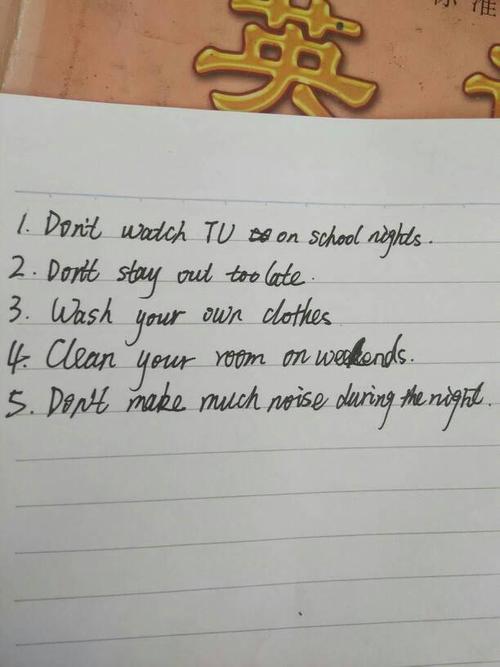 标准
英
1. Don't watch TV on school nights.
2. Don't stay out too late.
3. Wash your own clothes
4. Clean your room on weekends.
5. Don't make much noise during the night.